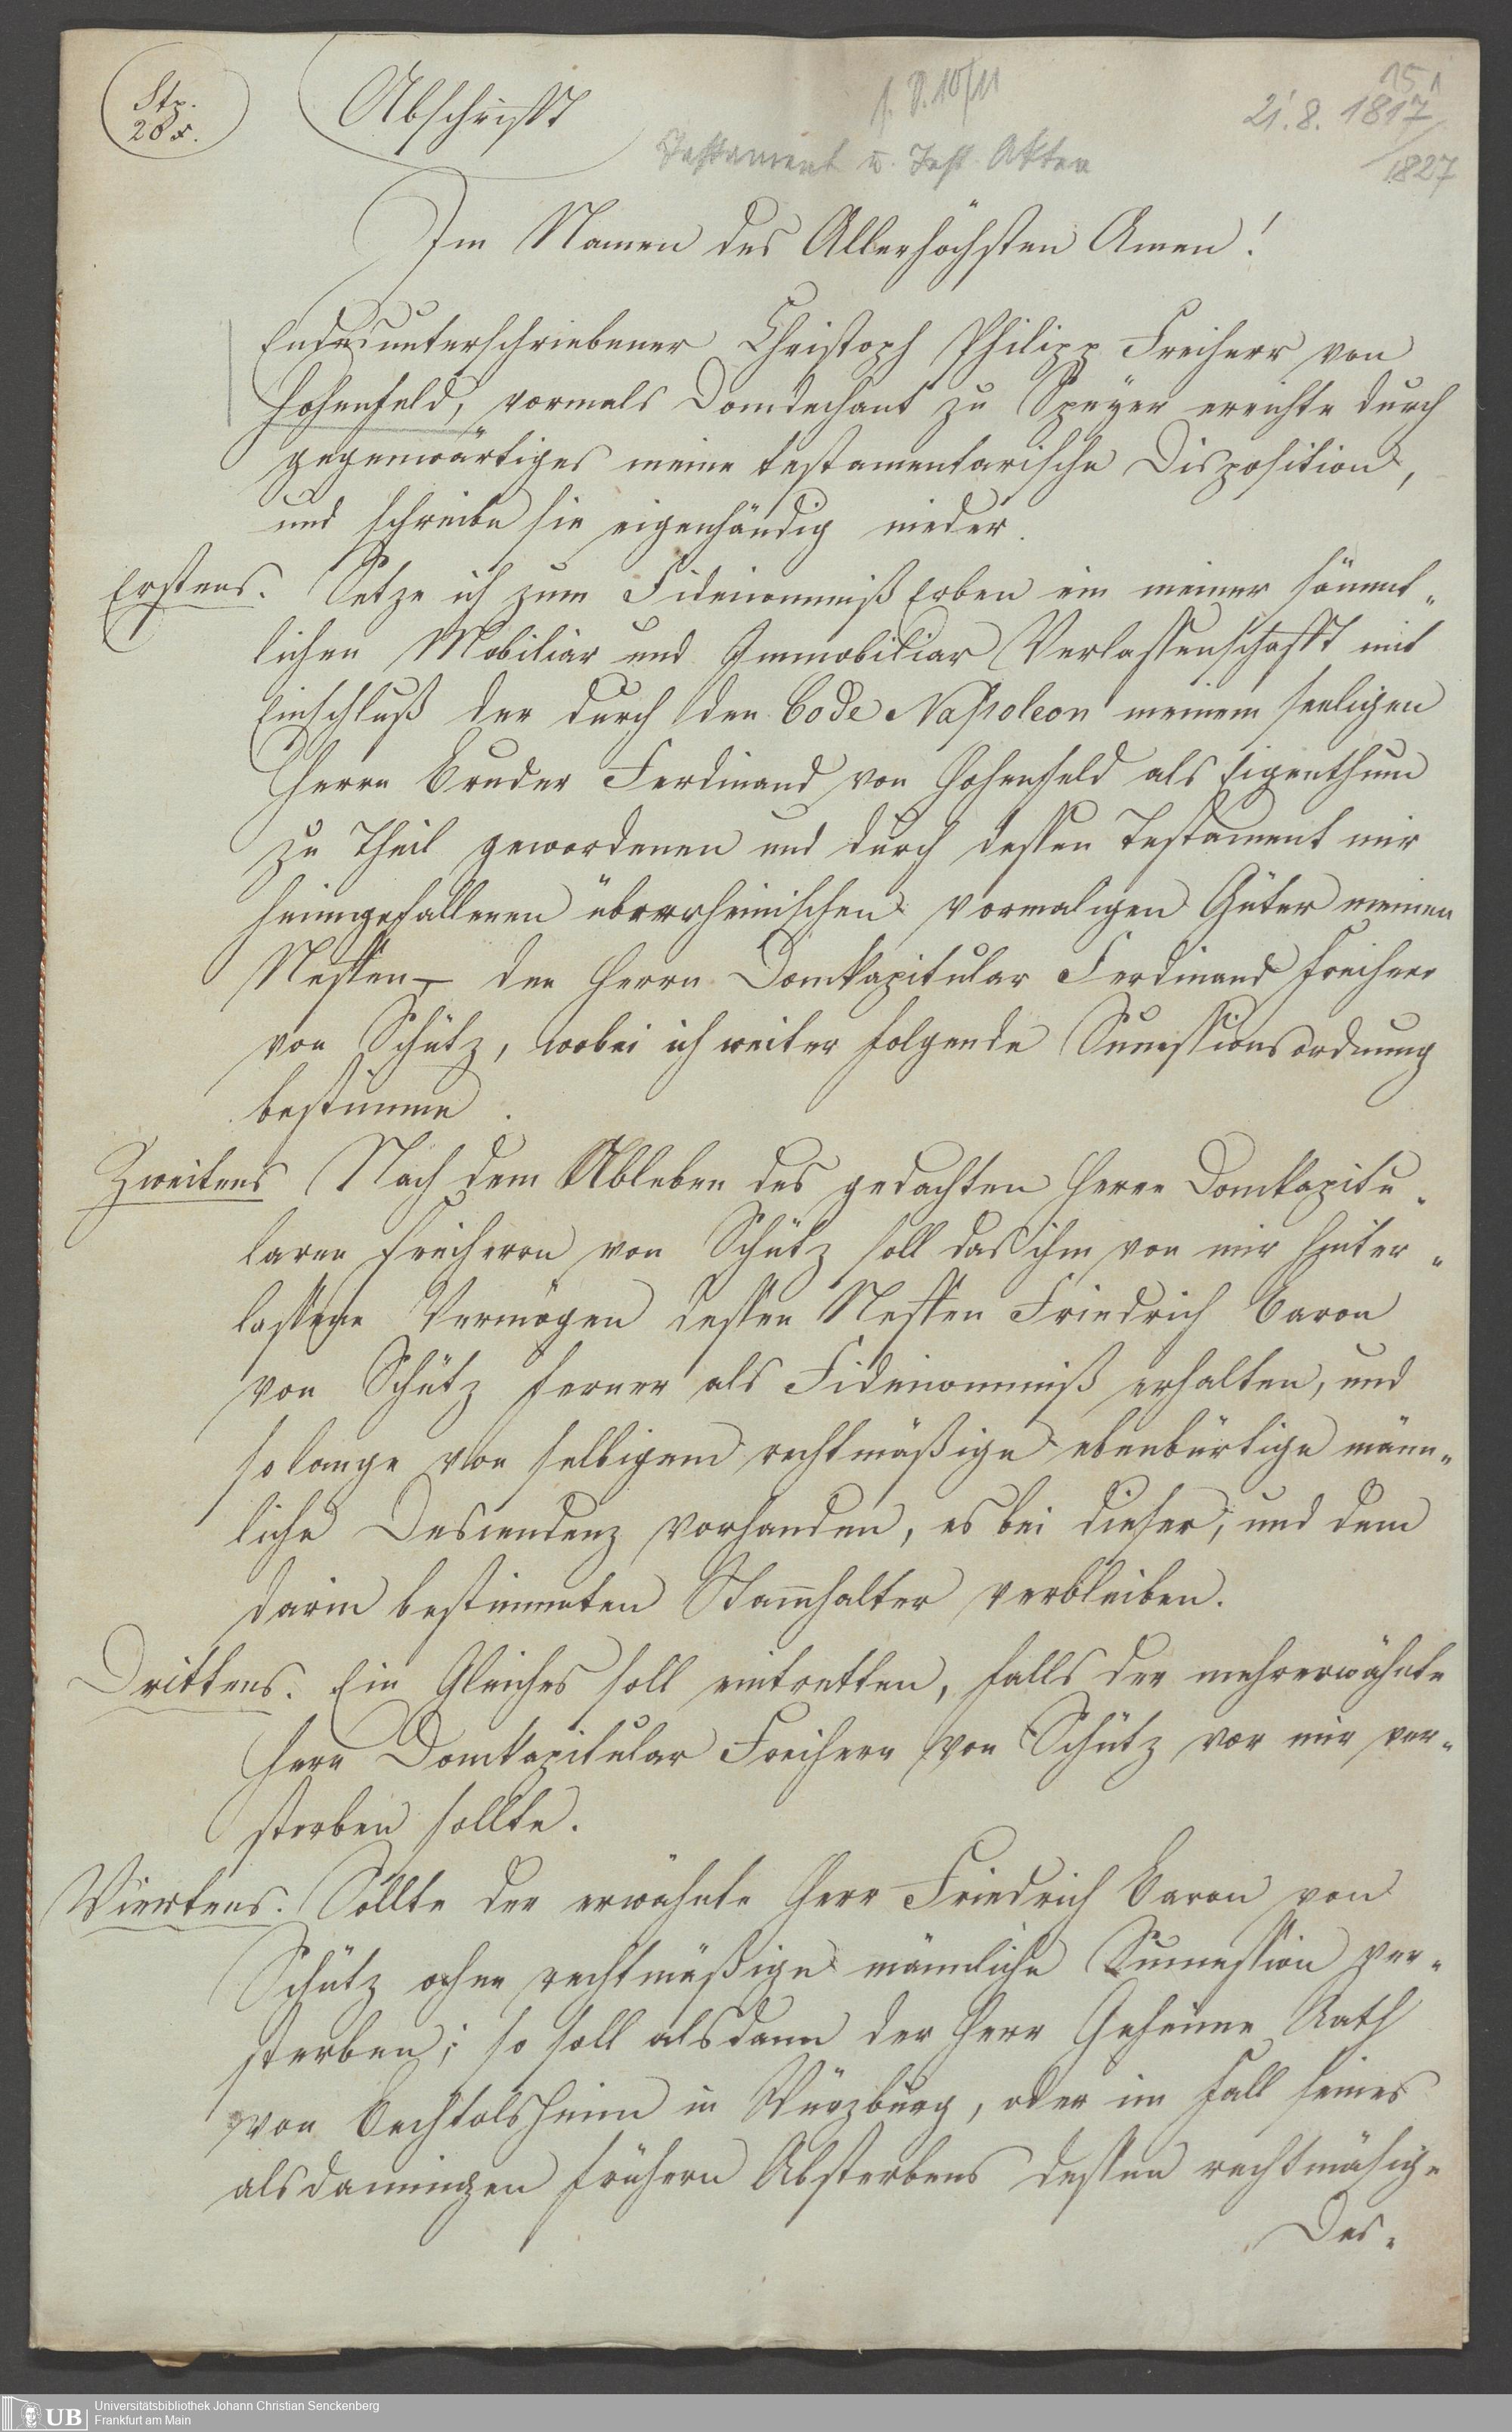 Stp.
20 x.
Abschrifft
f. P. 10/11
15 1
21. 8. 1817
/1827
Testament u. Test. Akten
Im Namen des Allerhöchsten Amen!
Endesunterschriebener Christoph Philipp Freiherr von
Hohenfeld, vormals Domdechant zu Speyer errichte durch
gegenwärtiges meine testamentarische Disposition,
und schreibe sie eigenhändig nieder.
Erstens. Setze ich zum Fideicommiß Erben ein meiner sämmt-
lichen Mobiliar und Immobiliar Verlassenschafft mit
Einschluß der durch den Code Napoleon meinem seeligen
Herrn Bruder Ferdinand von Hohenfeld als Eigenthum
zu Theil gewordenen und durch dessen Testament mir
heimgefallenen überrheinischen vormaligen Güter meinen
Neffen – den Herrn Domkapitular Ferdinand Freiherr
von Schütz, wobei ich weiter folgende Successionsordnung
bestimme.
Zweitens Nach dem Ableben des gedachten Herrn Domkapitu-
laren Freiherrn von Schütz soll das ihm von mir hinter-
lassene Vermögen dessen Neffen Friedrich Baron
von Schütz ferner als Fideicommiß erhalten, und
so lange von selbigem rechtmäßige ebenbürtige männ-
liche Descendenz vorhanden, es bei dieser, und dem
darin bestimmten Stammhalter verbleiben.
Drittens. Ein Gleiches soll eintretten, falls der mehrerwähnte
Herr Domkapitular Freiherr von Schütz vor mir ver-
sterben sollte.
Viertens. Sollte der erwähnte Herr Friedrich Baron von
Schütz ohne rechtmäßige männliche Succession ver-
sterben; so soll alsdann der Herr Geheime Rath
von Bechtolsheim in Würzburg, oder im Fall seines
alsdannigen frühern Absterbens dessen rechtmäßige
Des-
UB
Universitätsbibliothek Johann Christian Senckenberg
Frankfurt am Main